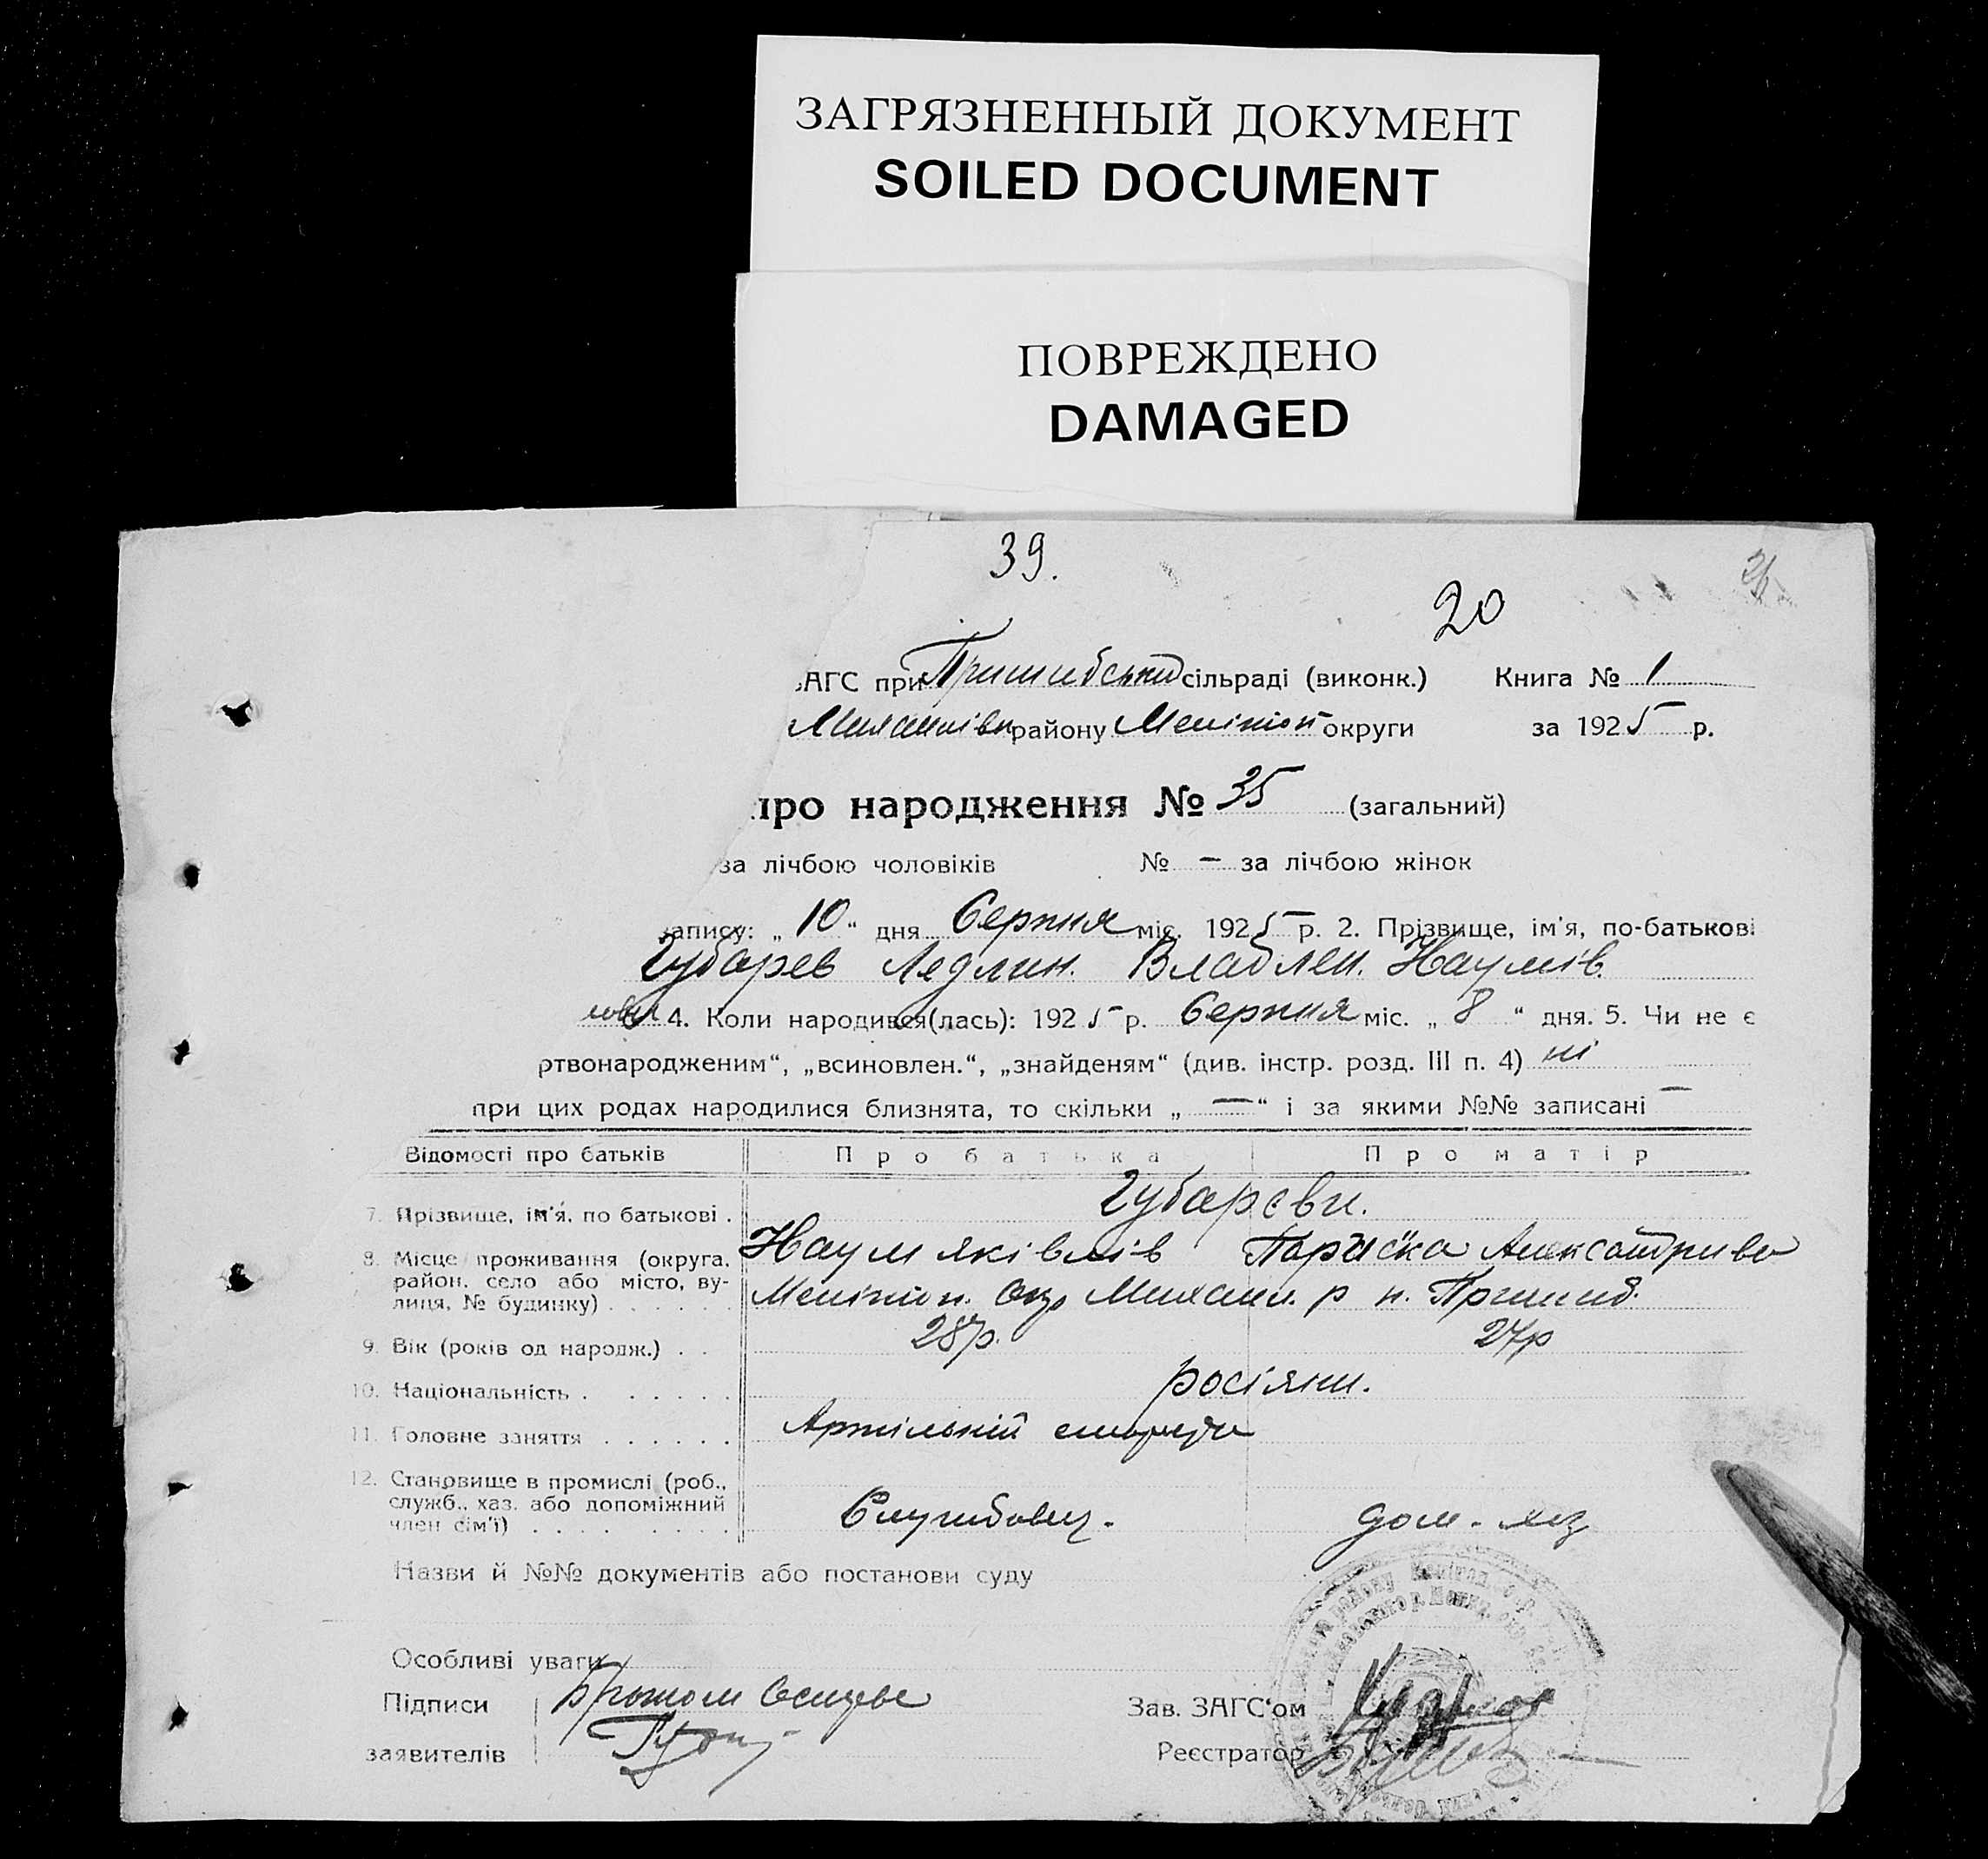 ЗАГРЯЗНЕННЫЙ ДОКУМЕНТ
SOILED DOCUMENT
ПОВРЕЖДЕНО
DAMAGED
39.
20
АГС при Пришибській сільраді (виконк.) Книга № 1
Михайлівк району Мелітоп округи за 1925 р.
про народження № 35 (загальний)
за лічбою чоловіків № — за лічбою жінок
запису: „ 10 “ дня Серпня міс. 1925 р. 2. Прізвище, ім'я, по-батькові
Губарев Ледлин. Владлен. Наумів.
4. Коли народився(лась): 1925 р. Серпня міс. „ 8 “ дня. 5. Чи не є
ртвонародженим“, „всиновлен.“, „знайденям“ (див. інстр. розд. III п. 4) ні
при цих родах народилися близнята, то скільки „ — “ і за якими №№ записані —
Відомості про батьків Про батька Про матір
7. Прізвище, ім'я, по батькові . Губареви.
Наум Яківлів Параска Александрива
8. Місце проживання (округа, район, село або місто, вулиця, № будинку) . . . . . . Мелітоп. Окр Михайл. р н. Пришиб.
9. Вік (років од народж.) . . 28р. 27р
10. Національність . . . . . . росіяни.
11. Головне заняття . . . . . . Артільній
12. Становище в промислі (роб., служб., хаз. або допоміжний член сім'ї) . . . . . . . Службовец. дом. хаз
Назви й №№ документів або постанови суду
Особливі уваги
Підписи
заявителів
Зав. ЗАГС'ом
Реєстратор